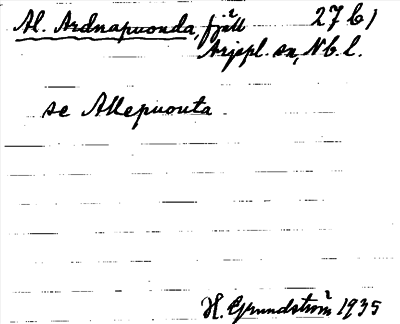 Al. Ardnapuonda, fjäll 27 b)
Arjepl. sn, Nb. l.
se Allepuouta.
H. Grundström 1935